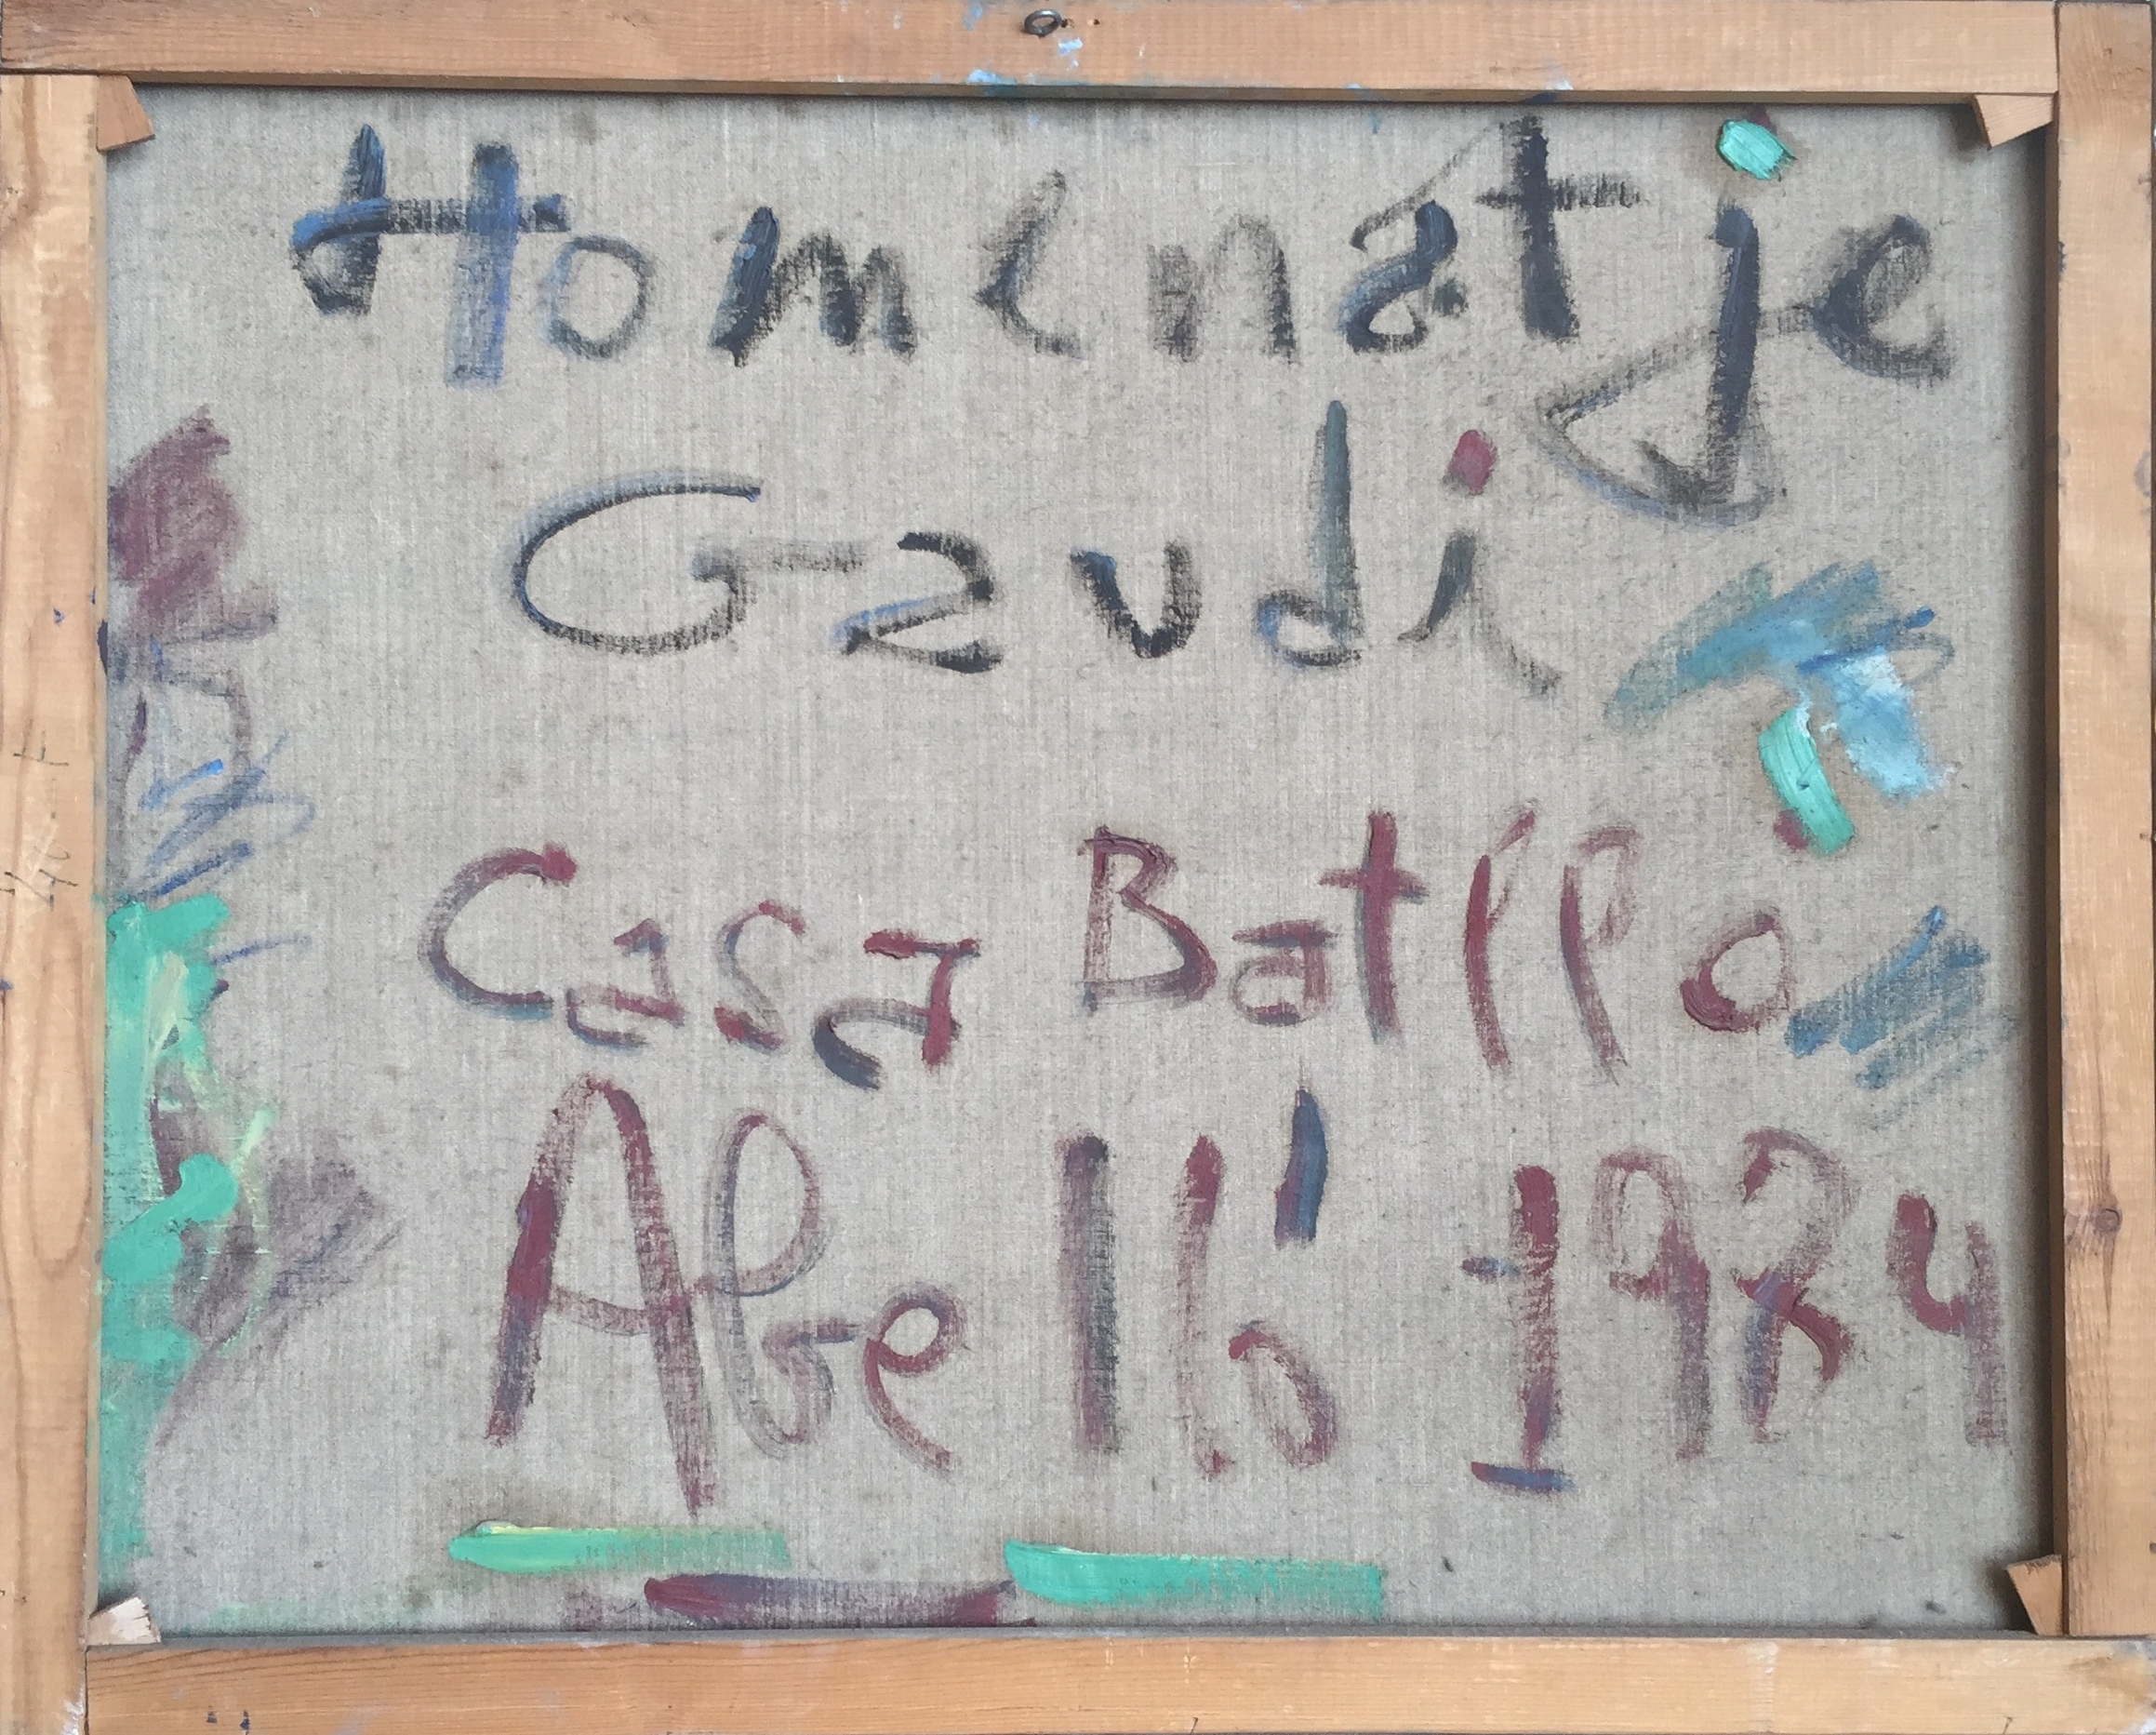 Homenatje
Gaudi
Casa Batlló
Abelló 1984